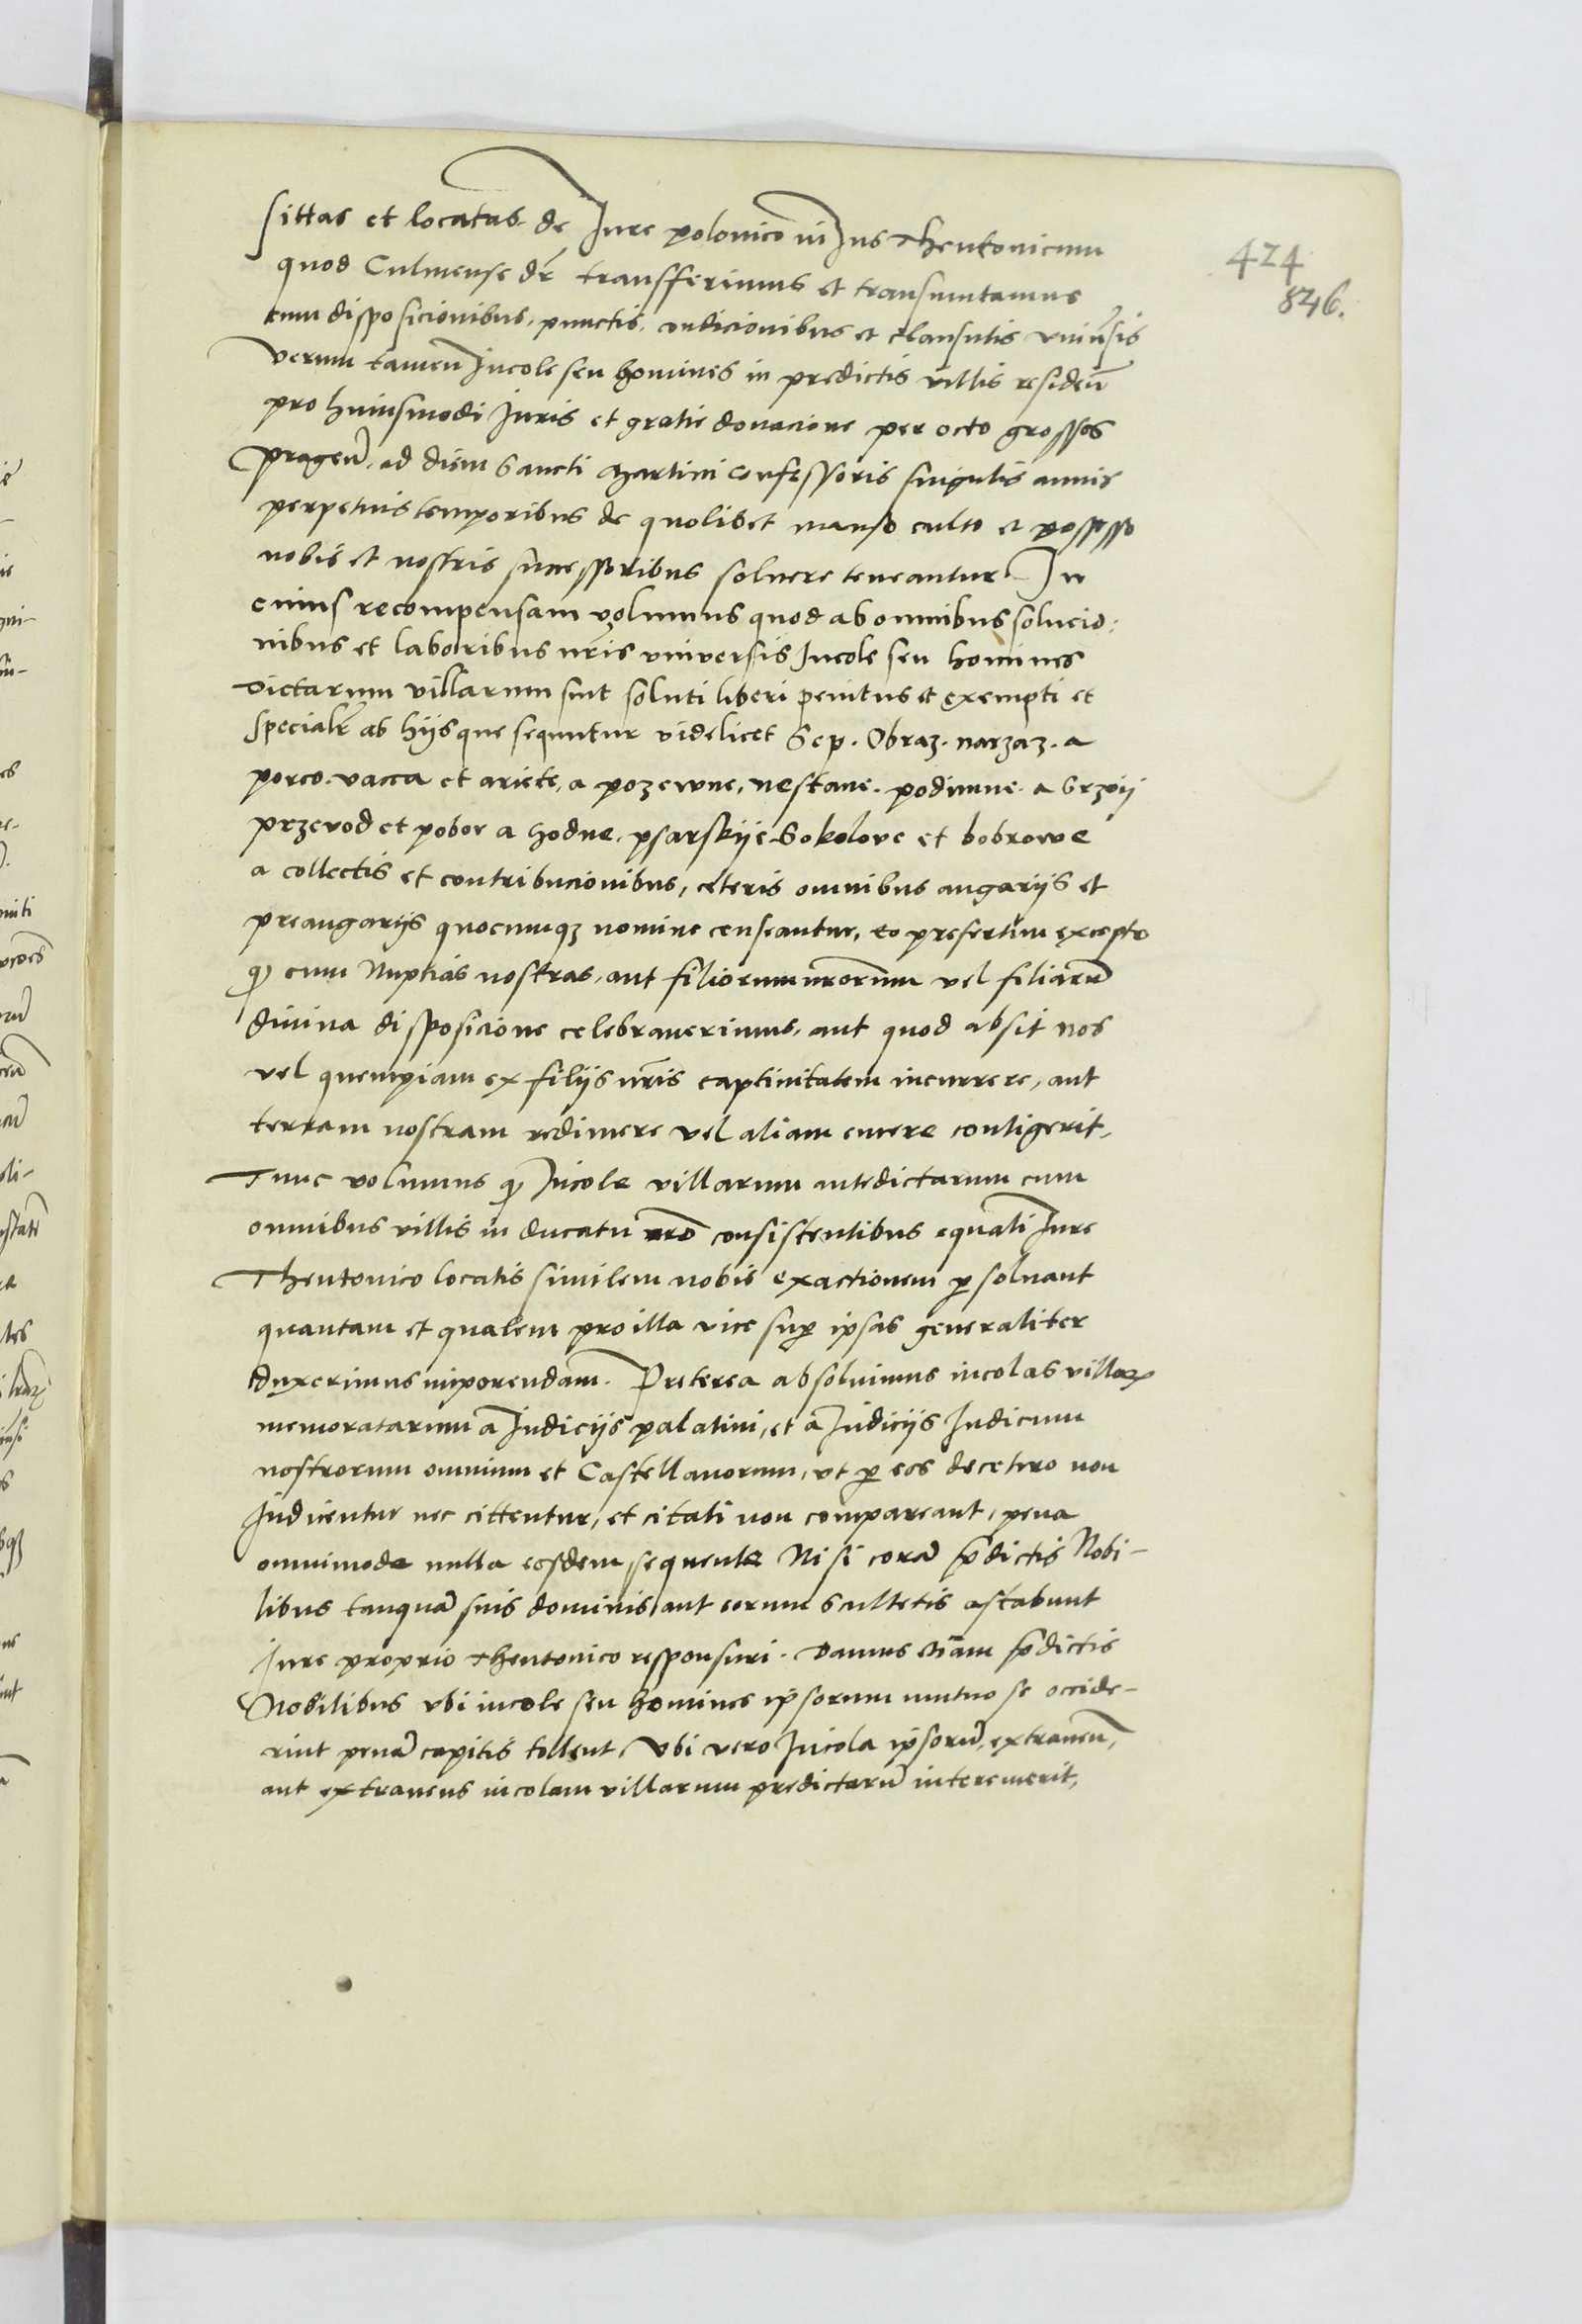 sittas et locatas de Iure polonico in Ius Theutonicum
424
quod Culmense dr̃ transfferimus et transmutamus
846.
cum disposicionibus, punctis, condicionibus et clausulis vniuẽsis
Verum tamen Incole seu homines in predictis villis residen̄
pro huiusmodi Iuris et gratie donacione per octo grossos
pragen̄. ad diem Sancti Martini Confessoris singulis annis
perpetuis temporibus de quolibet manso culto et possesso
nobis et nostris successoribus soluere teneantur. In
cuius recompensam volumus quod ab omnibus solucio:
nibus et laboribus nr̃is vniversis Incole seu homines
dictarum villarum sint soluti liberi penitus et exempti et
specialr̃ ab hijs que sequntur videlicet Sep. Obraz. narzaz. a
porco. vacca et ariete, a pozewne, nestane. podimne. a Srzvij
przevod et pobor a hodne. psarskije Sokolove et bobrowe
a collectis et contribucionibus, ceteris omnibus angarijs et
preangarijs quocumqʒ nomine censeantur, eo presertim excepto
ꝙ cum Nuptias nostras, aut filiorum nrorum vel filiarū
diuina disposicione celebrauerimus, aut quod absit nos
vel quempiam ex filijs nr̃is captiuitatem incurrere, aut
terram nostram redimere vel aliam emere contigerit,
Tunc volumus ꝙ Incole villarum antedictarum cum
omnibus villis in ducatu nr̃o consistentibus equali Iure
Theutonico locatis similem nobis exactionem ꝑsoluant
quantam et qualem pro illa vice suꝑ ipsas generaliter
duxerimus imponendam. Preterea absoluimus incolas villaꝝ
memoratarum a Iudicijs palatini, et a Iudicijs Iudicum
nostrorum omnium et Castellanorum, vt ꝑ eos decetero non
Iudicentur nec cittentur, et citati non compareant, pena
omnimode nulla eosdem sequente Nisi corā p̄dictis Nobi-
libus tanquā suis dominis aut eorum scultetis astabunt
Iure proprio theutonico responsuri. Damus etiam p̄dictis
Nobilibus vbi incole seu homines ipsorum mutuo se occide-
rint penā capitis tollent, Vbi vero Incola ipsorū, extraneū,
aut extraneus incolam villarum predictarū interemerit,